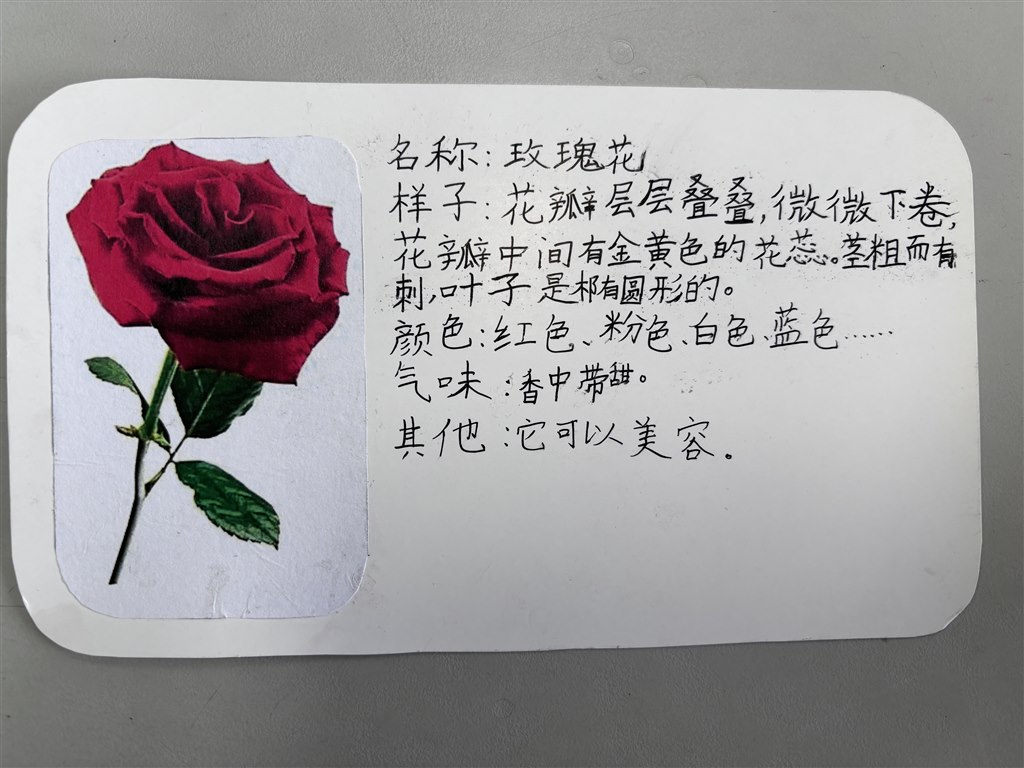 名称:玫瑰花
样子:花瓣层层叠叠,微微下卷,
花瓣中间有金黄色的花蕊。茎粗而有
刺,叶子是椭圆形的。
颜色:红色、粉色、白色、蓝色……
气味:香中带甜。
其他:它可以美容。